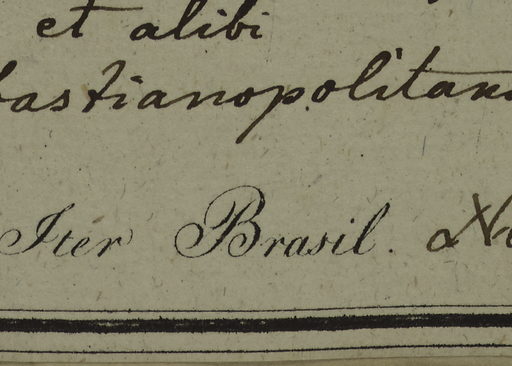 et alibi
bastianopolitana
Iter Brasil. N